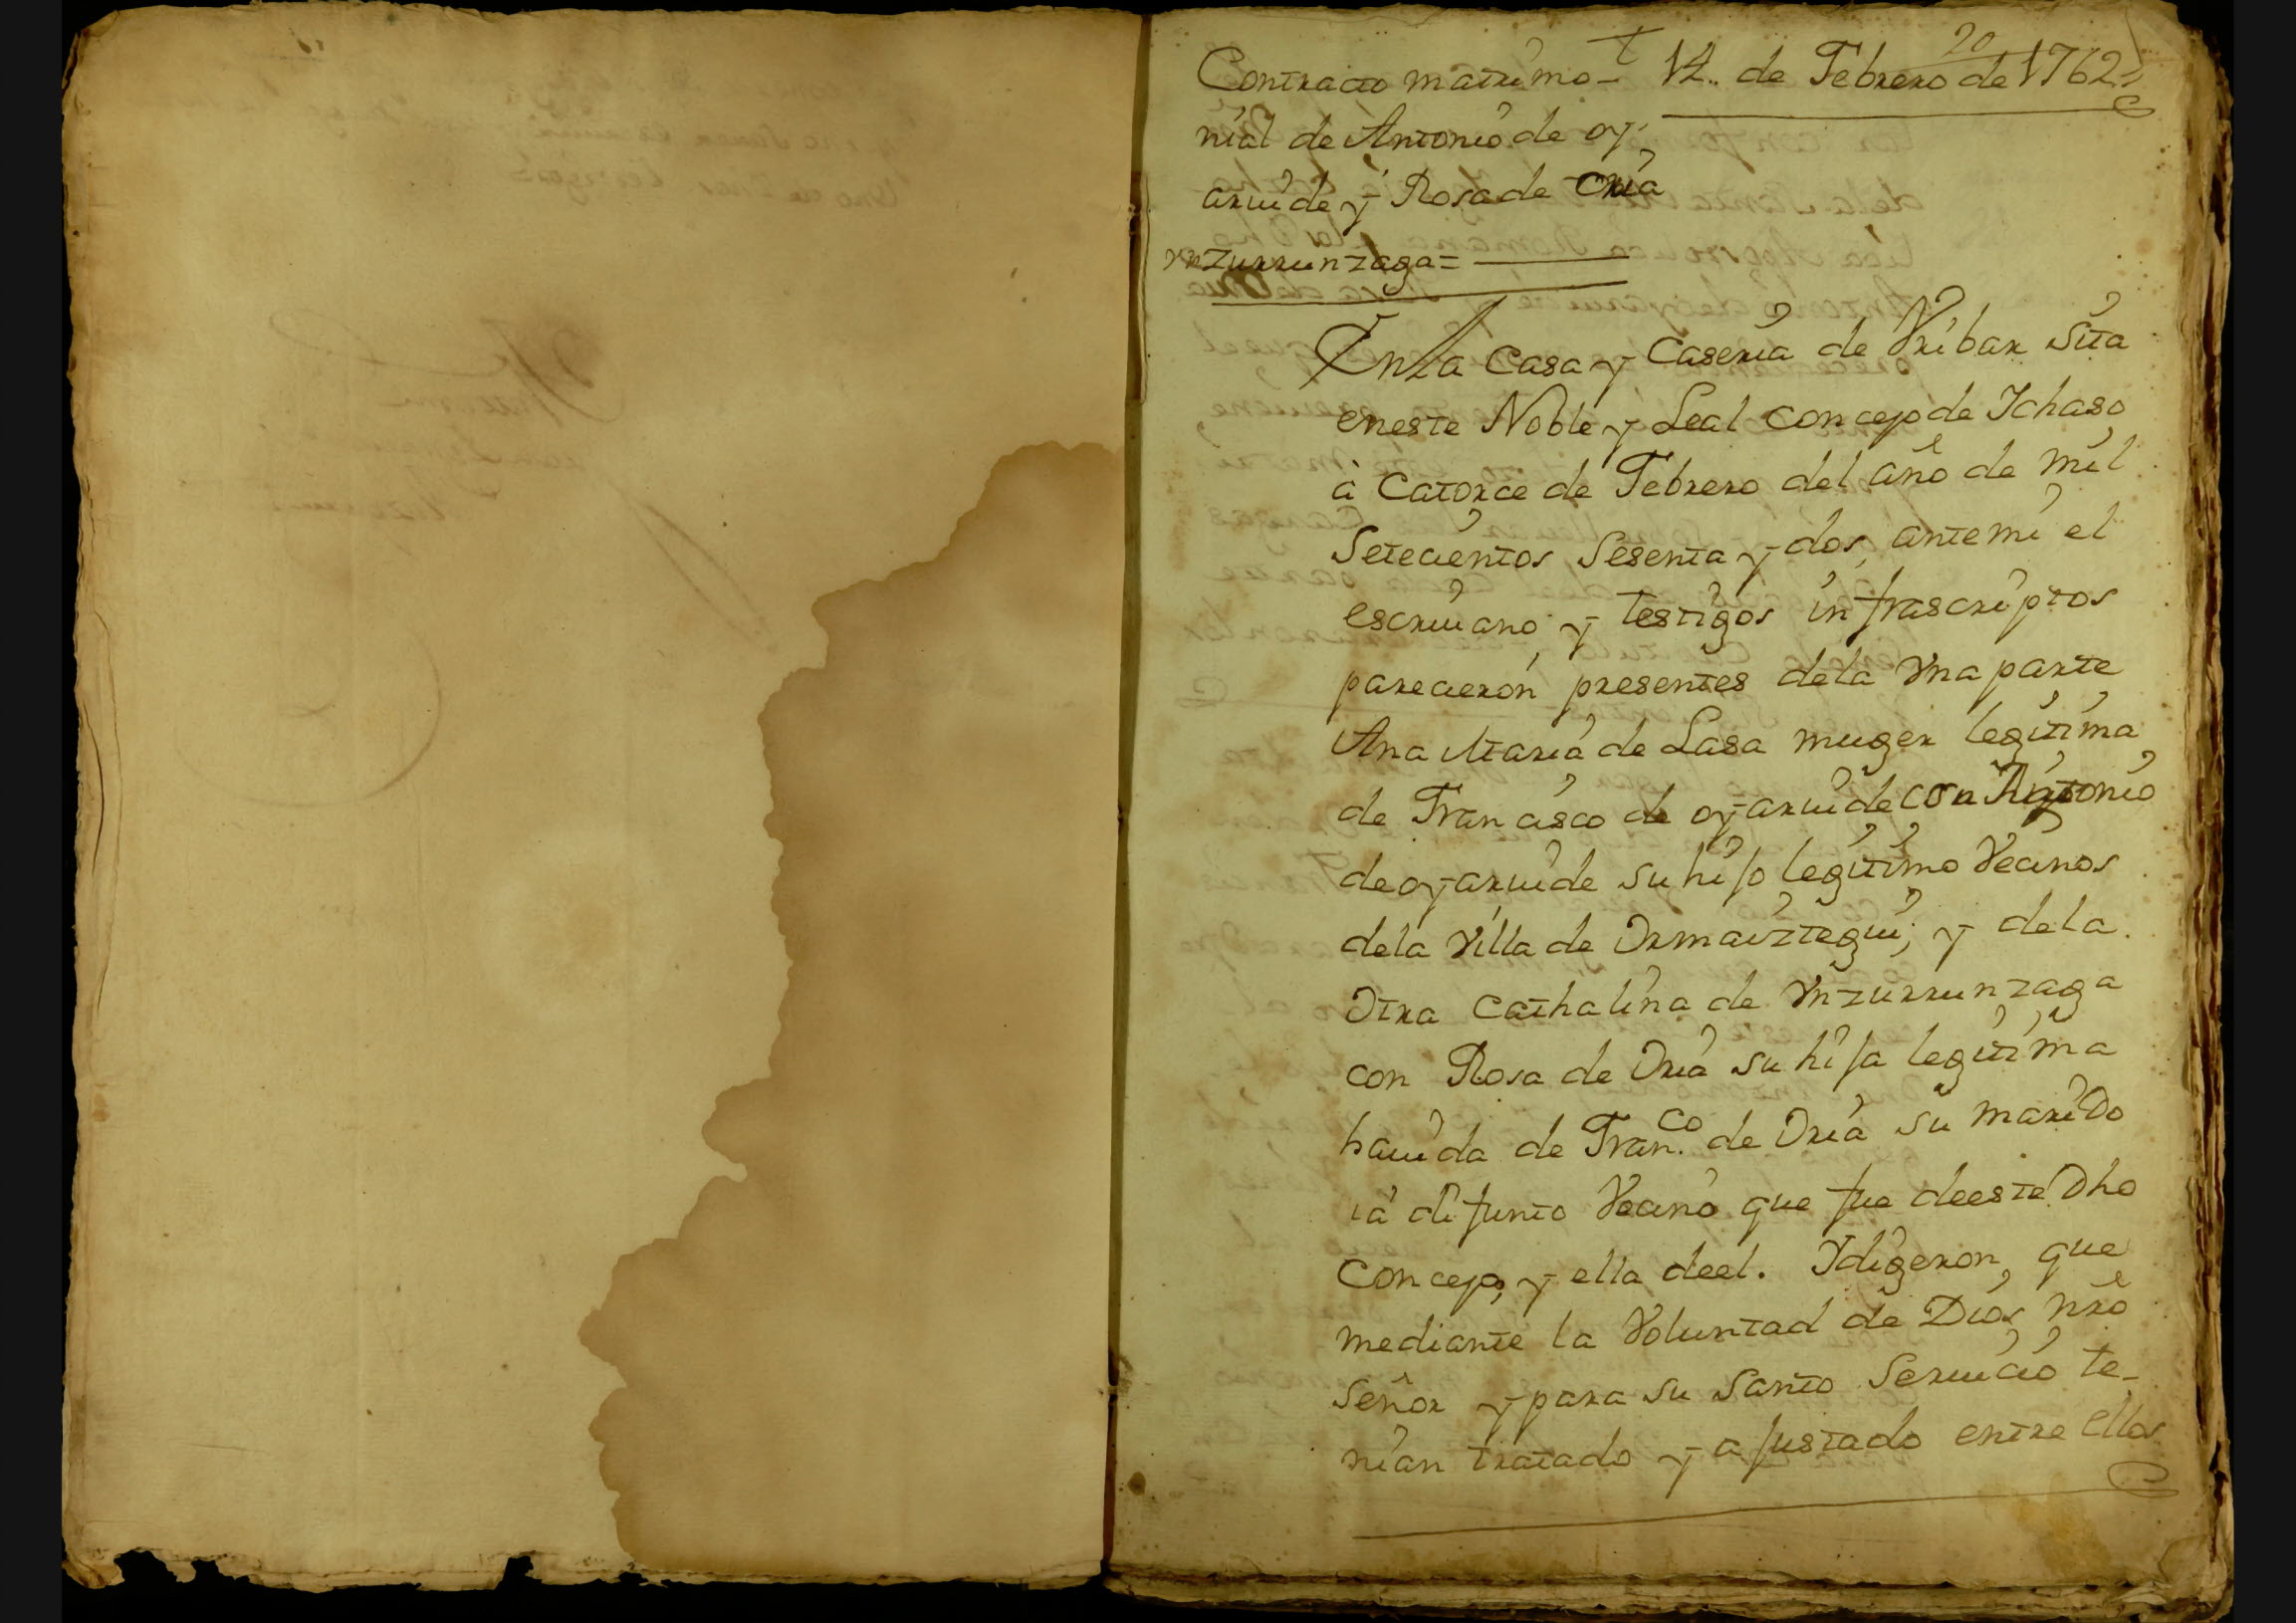 20
Contracto matrimo- 14.. de Febrero de 1762=
nial de Antonio de oy-
aruide y Rosa de Oria
Ynzurrunzaga=
En la Casa y Caseria de Yribar Sita
en este Noble y Leal concejo de Ichaso
à Catorce de Febrero del año de mil
Setecientos Sesenta y dos, ante mi el
escriuano, y testigos infrascriptos
parecieron presentes de la Vna parte
Ana Maria de Lasa muger legitima
de Francisco de oyaruide con Antonio
de oyaruide su hijo legitimo Vecinos
de la Villa de Ormaiztegui; y de la
Otra Cathalina de Ynzurrunzaga
con Rosa de Oria su hija legitima
hauida de Fran.co de Oria su marido
ià difunto Vecino que fue de este Dho
Concejo, y ella de el. Y digeron, que
mediante la Voluntad de Dios nrõ
Señor y para su Santo Seruicio te-
nian tratado y ajustado entre ellos